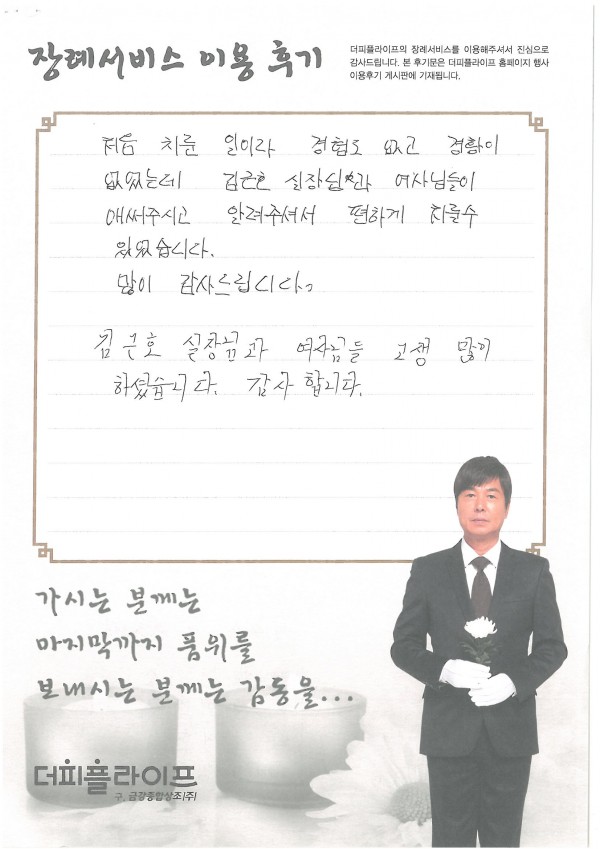 장례서비스 이용 후기
더피플라이프의 장례서비스를 이용해주셔서 진심으로
감사드립니다. 본 후기문은 더피플라이프 홈페이지 행사
이용후기 게시판에 기재됩니다.
처음 치룬 일이라 경험도 없고 경황이
없었는데 김근호 실장님과 여사님들이
애써주시고 알려주셔서 편하게 치를수
있었습니다.
많이 감사드립니다.
김근호 실장님과 여사님들 고생 많이
하셨습니다. 감사합니다.
가시는 분께는
마지막까지 품위를
보내시는 분께는 감동을...
더피플라이프
구. 금강종합상조(주)